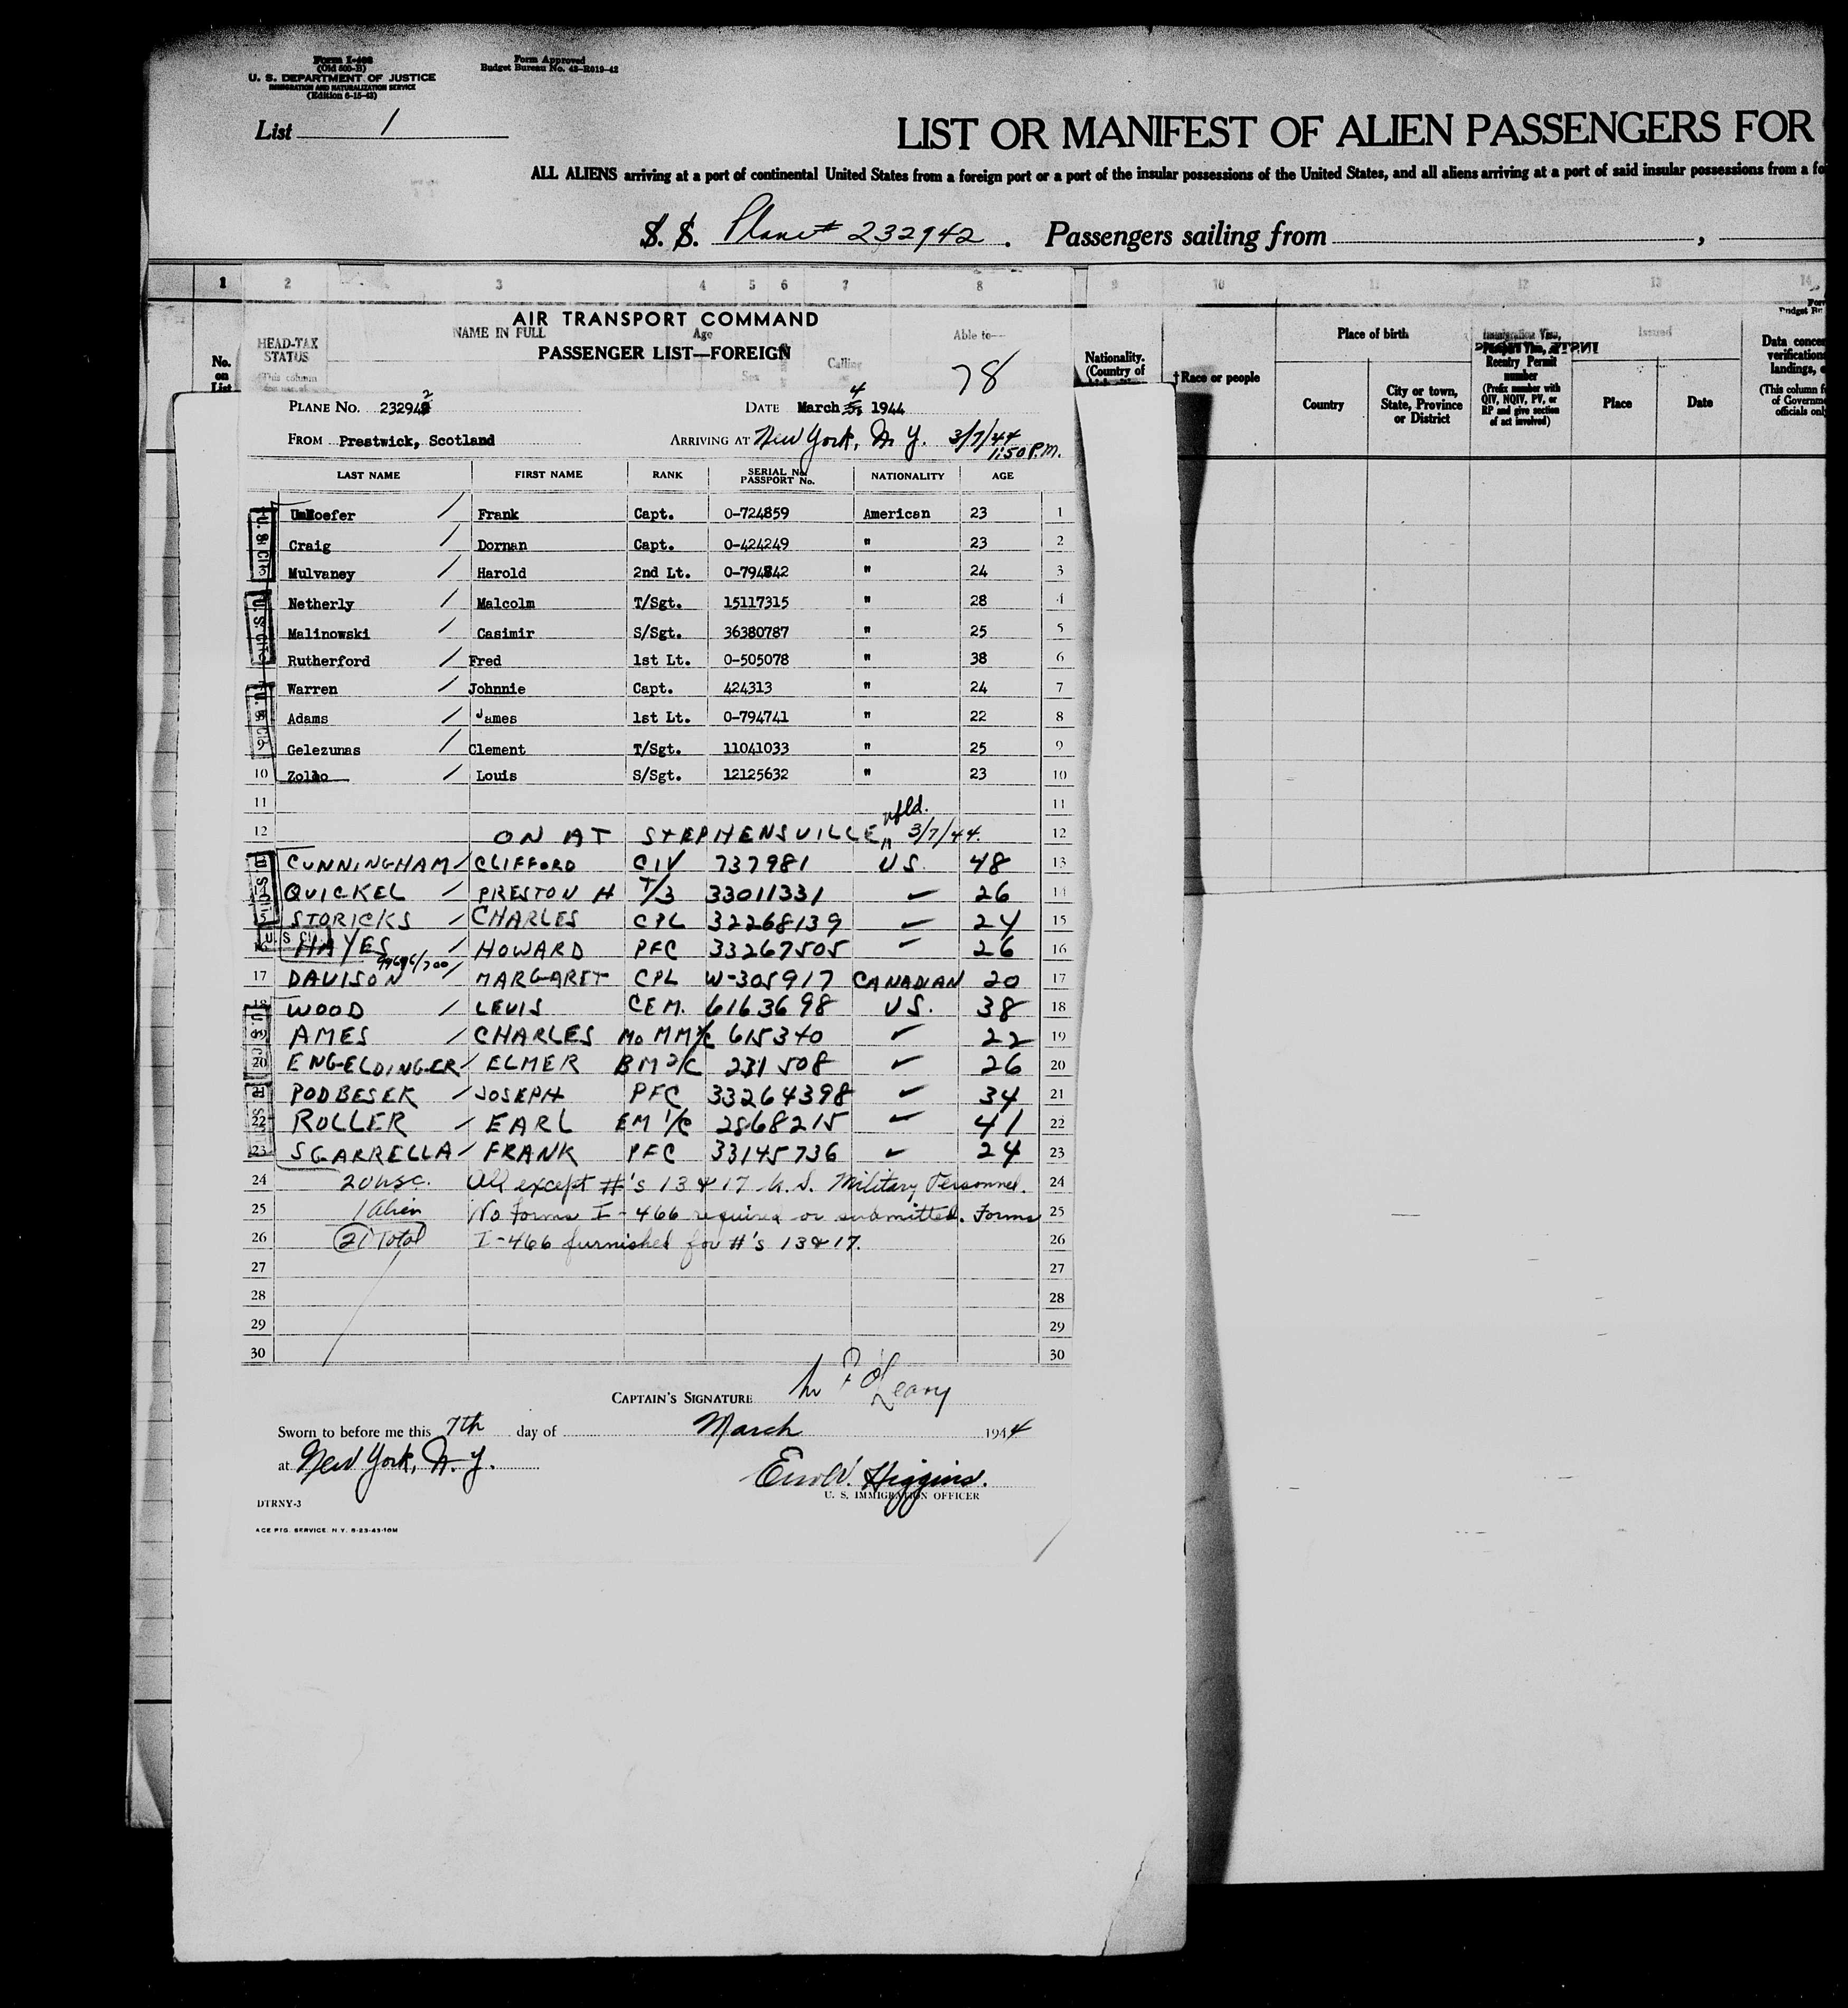 Form I-466
(Old 500-B)
U. S. DEPARTMENT OF JUSTICE
IMMIGRATION AND NATURALIZATION SERVICE
(Edition 6-15-43)
Form Approved
Budget Bureau No. 43-R019-42
List 1
LIST OR MANIFEST OF ALIEN PASSENGERS FOR
ALL ALIENS arriving at a port of continental United States from a foreign port or a port of the insular possessions of the United States, and all aliens arriving at a port of said insular possessions from a fo
S. S. Plane # 232942. Passengers sailing from
1 2 3 4 5 6 7 8 9 10 11 12 13 14
AIR TRANSPORT COMMAND
HEAD-TAX STATUS NAME IN FULL Age Able to—
PASSENGER LIST—FOREIGN
This column Sex Calling
78
No. on List
Nationality. (Country of
†Race or people
Place of birth
Country
City or town, State, Province or District
Reentry Permit number
(Prefix number with QIV, NQIV, PV, or RP and give section of act involved)
Issued
Place Date
Data concer
verification
landings,
(This column f
of Governme
officials onl
PLANE NO. 232942 DATE March 4 1944
FROM Prestwick, Scotland ARRIVING AT New York, N.Y. 3/7/44
1:50 P.M.
LAST NAME FIRST NAME RANK SERIAL No. PASSPORT No. NATIONALITY AGE
UmHoefer / Frank Capt. O-724859 American 23 1
Craig / Dornan Capt. O-424249 " 23 2
Mulvaney / Harold 2nd Lt. O-794842 " 24 3
Netherly / Malcolm T/Sgt. 15117315 " 28 4
Malinowski / Casimir S/Sgt. 36380787 " 25 5
Rutherford / Fred 1st Lt. O-505078 " 38 6
Warren / Johnnie Capt. 424313 " 24 7
Adams / James 1st Lt. O-794741 " 22 8
Gelezunas / Clement T/Sgt. 11041033 " 25 9
10 Zollo / Louis S/Sgt. 12125632 " 23 10
11 11
12 ON AT STEPHENSVILLE, nfld. 3/7/44. 12
CUNNINGHAM / CLIFFORD CIV 737981 U S. 48 13
QUICKEL / PRESTON H T/3 33011331 ✓ 26 14
STORICKS / CHARLES CPL 32268139 ✓ 24 15
U. S CIT.
16 HAYES / HOWARD PFC 33267505 ✓ 26 16
17 DAVISON / MARGARET CPL W-305917 CANADIAN 20 17
18 WOOD / LEVIS CEM. 6163698 US. 38 18
AMES / CHARLES MoMM2/C 615340 ✓ 22 19
20 ENGELDINGER / ELMER BM2/C 231508 ✓ 26 20
PODBESEK / JOSEPH PFC 33264398 ✓ 34 21
22 ROLLER / EARL EM 1/C 2868215 ✓ 41 22
23 SGARRELLA / FRANK PFC 33145736 ✓ 24 23
24 20 USC. All except #'s 13 & 17 U.S. Military Personnel. 24
25 1 Alien No forms I-466 required or submitted. Forms 25
26 21 Total I-466 furnished for #'s 13 & 17. 26
27 27
28 28
29 29
30 30
CAPTAIN'S SIGNATURE O'Leary
Sworn to before me this 7th day of March 1944
at New York, N.Y. Higgins.
U. S. IMMIGRATION OFFICER
DTRNY-3
ACE PTG. SERVICE. N.Y. 8-23-43-10M